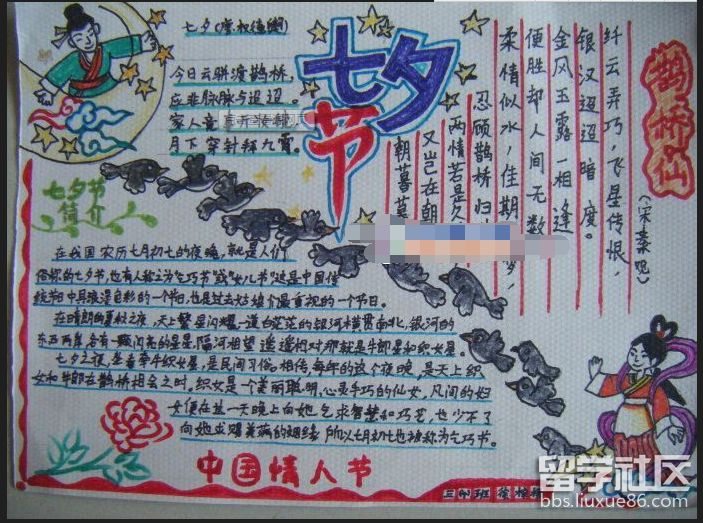 七夕节
七夕(唐·权德舆)
今日云骈渡鹊桥，
应非脉脉与迢迢。
家人竞
月下穿针拜九霄。
鹊桥仙
(宋秦观)
纤云弄巧，飞星传恨，
银汉迢迢暗度。
金风玉露一相逢
便胜却人间无数
柔情似水，佳期
忍顾鹊桥归
两情若是久
又岂在朝
朝暮暮
七夕节
简介
在我国农历七月初七的夜晚，就是人们
俗称的七夕节，也有人称之为"乞巧节"或"女儿节"这是中国传
统节日中具浪漫色彩的一个节日，也是过去姑娘们最重视的一个节日。
在晴朗的夏秋之夜，天上繁星闪耀一道白茫茫的银河横贯南北，银河的
东西两岸，各有一颗闪亮的星星，隔河相望 遥遥相对那就是牛郎星和织女星。
七夕之夜，坐看牵牛织女星，是民间习俗。相传每年的这个夜晚，是天上织
女和牛郎在鹊桥相会之时。织女是一个美丽聪明，心灵手巧的仙女，凡间的妇
女便在这一天晚上向她乞求智慧和巧艺，也少不了
向她求赐美满的姻缘 所以七月初七也被称为乞巧节。
中国情人节
留学社区
bbs.liuxue86.com